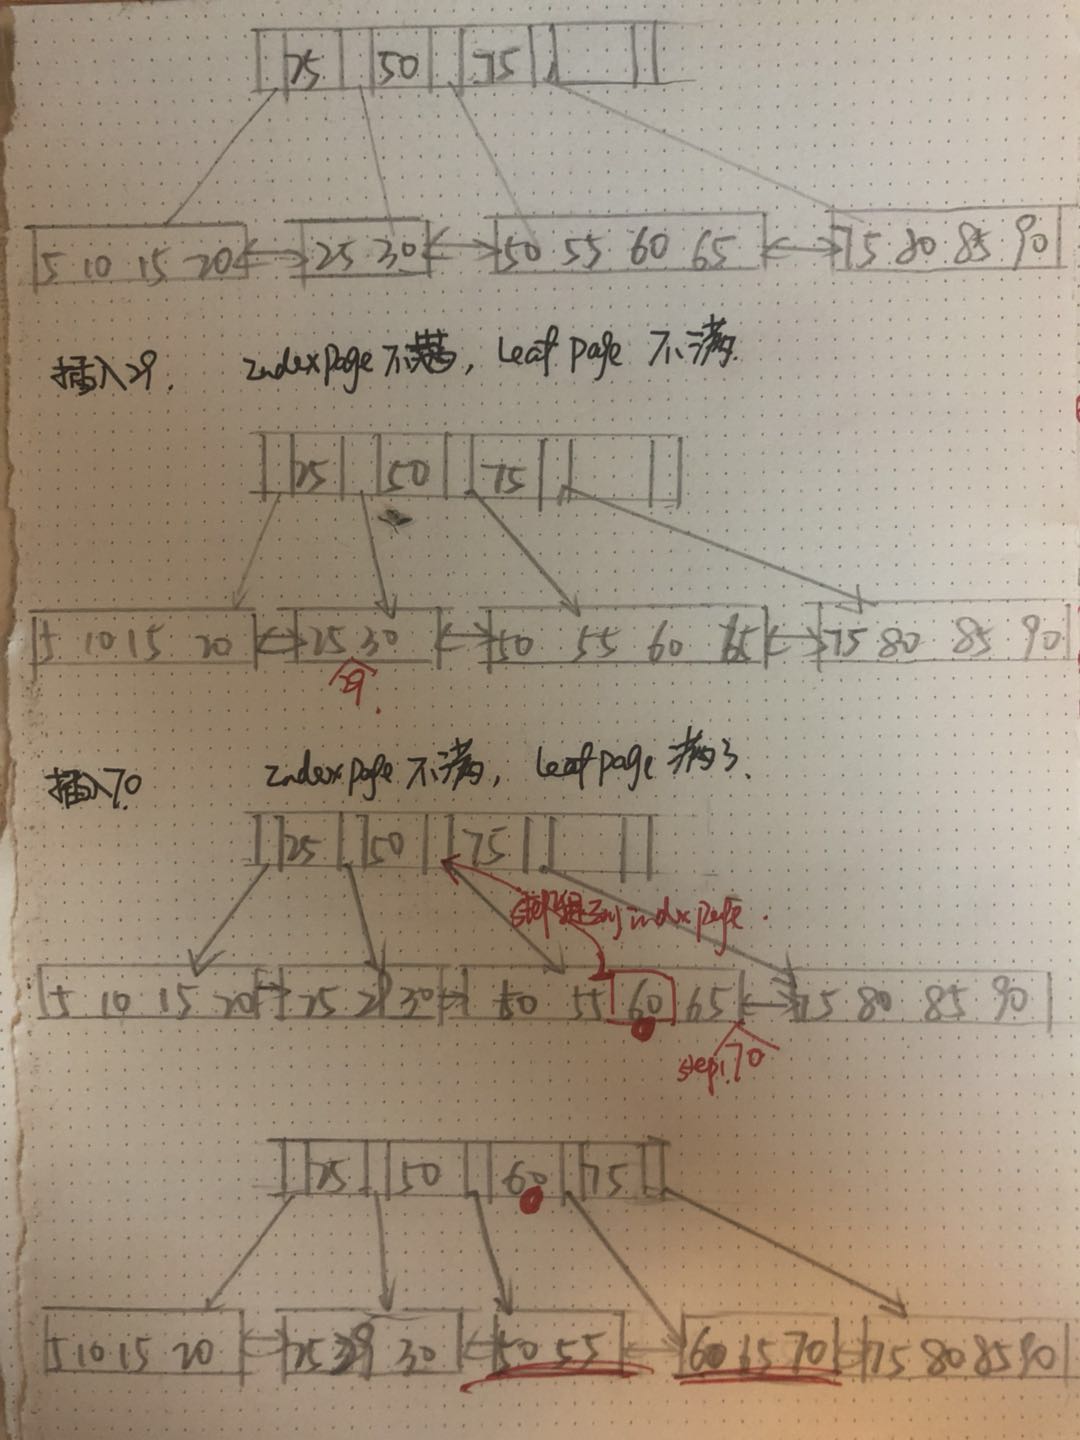 25 50 75
5 10 15 20 25 30 50 55 60 65 75 80 85 90
插入29. Index Page 不满, Leaf page 不满.
25 50 75
5 10 15 20 25 30 50 55 60 65 75 80 85 90
29.
插入70 Index page 不满, Leaf page 满了.
25 50 75
index page.
5 10 15 20 25 29 30 50 55 60 65 75 80 85 90
step1. 70
25 50 60 75
5 10 15 20 25 29 30 50 55 60 65 70 75 80 85 90